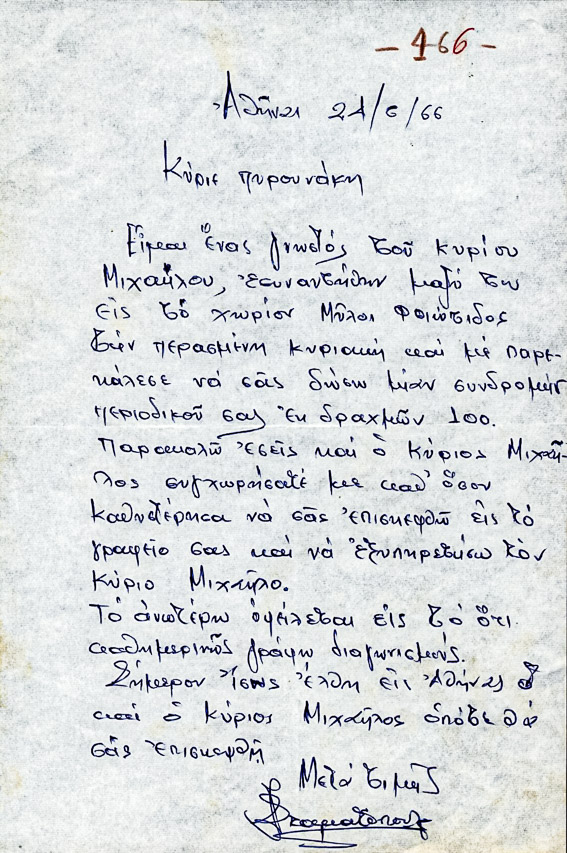 - 166 -
Ἀθῆναι 21/6/66
Κύριε Πυρουνάκη
Εἶμαι ἕνας γνωστός τοῦ κυρίου
Μιχαήλου, ἐσυναντήθην μαζύ του
εἰς τό χωρίον Μῦλοι Φθιώτιδος
τήν περασμένη κυριακή καί μέ παρε-
κάλεσε νά σᾶς δώσω μίαν συνδρομήν
περιοδικοῦ σας ἐκ δραχμῶν 100.
Παρακαλῶ ἐσεῖς καί ὁ Κύριος Μιχαῆ-
λος συγχωρήσατέ με καθ' ὅσον
καθυστέρησα νά σᾶς ἐπισκεφθῶ εἰς τό
γραφεῖο σας καί νά ἐξυπηρετήσω τόν
Κύριο Μιχαῆλο.
Τό ἀνωτέρω ὀφείλεται εἰς τό ὅτι
καθημερινῶς γράφω διαγωνισμούς.
Σήμερον ἴσως ἔλθη εἰς Ἀθήνας
καί ὁ Κύριος Μιχαῆλος ὁπότε θά
σᾶς ἐπισκεφθῆ
Μετά τιμῆς